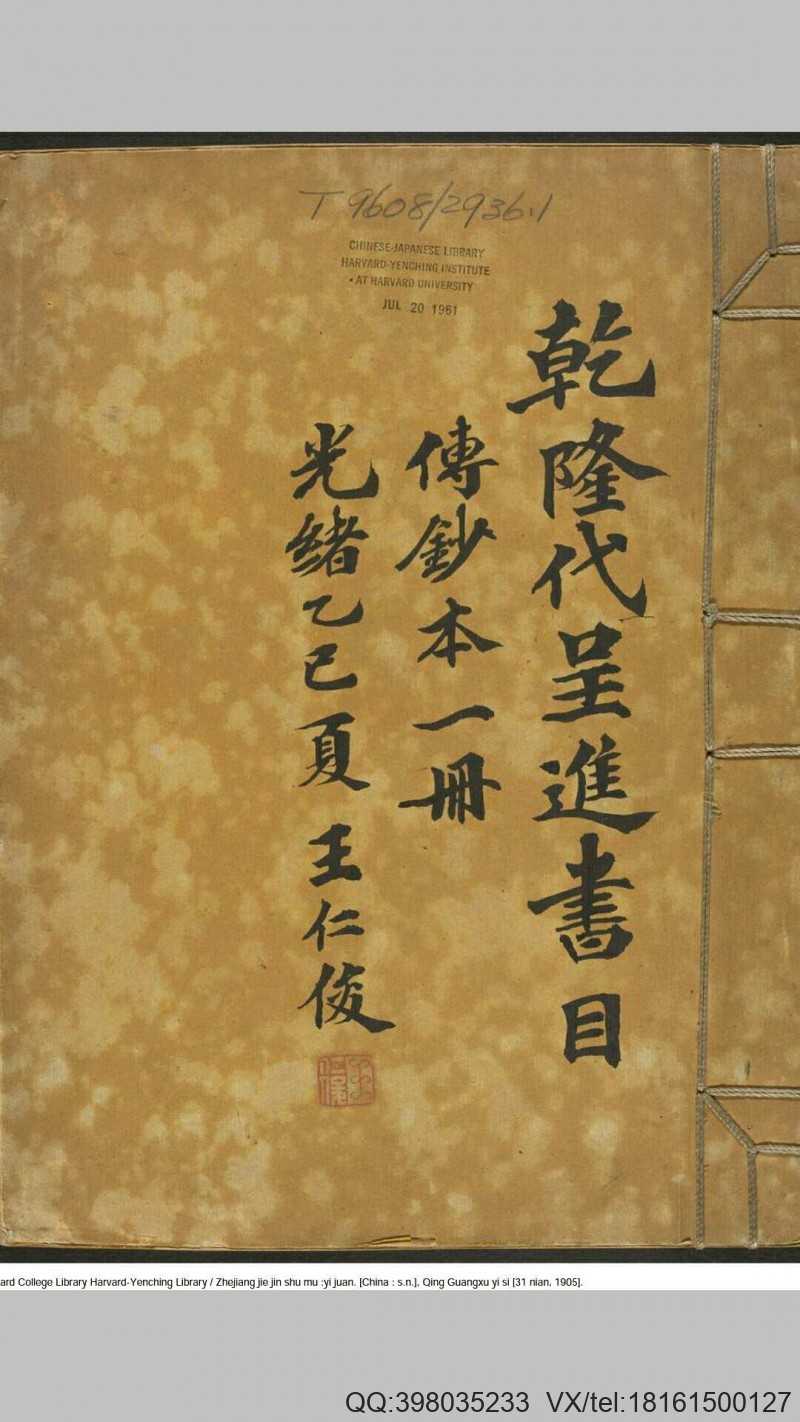 T 9608/2936.1
CHINESE-JAPANESE LIBRARY
HARVARD-YENCHING INSTITUTE
• AT HARVARD UNIVERSITY
JUL 20 1961
乾隆代呈進書目
傳鈔本一冊
光緒乙巳夏王仁俊
ard College Library Harvard-Yenching Library / Zhejiang jie jin shu mu :yi juan. [China : s.n.], Qing Guangxu yi si [31 nian, 1905].
QQ:398035233 VX/tel:18161500127